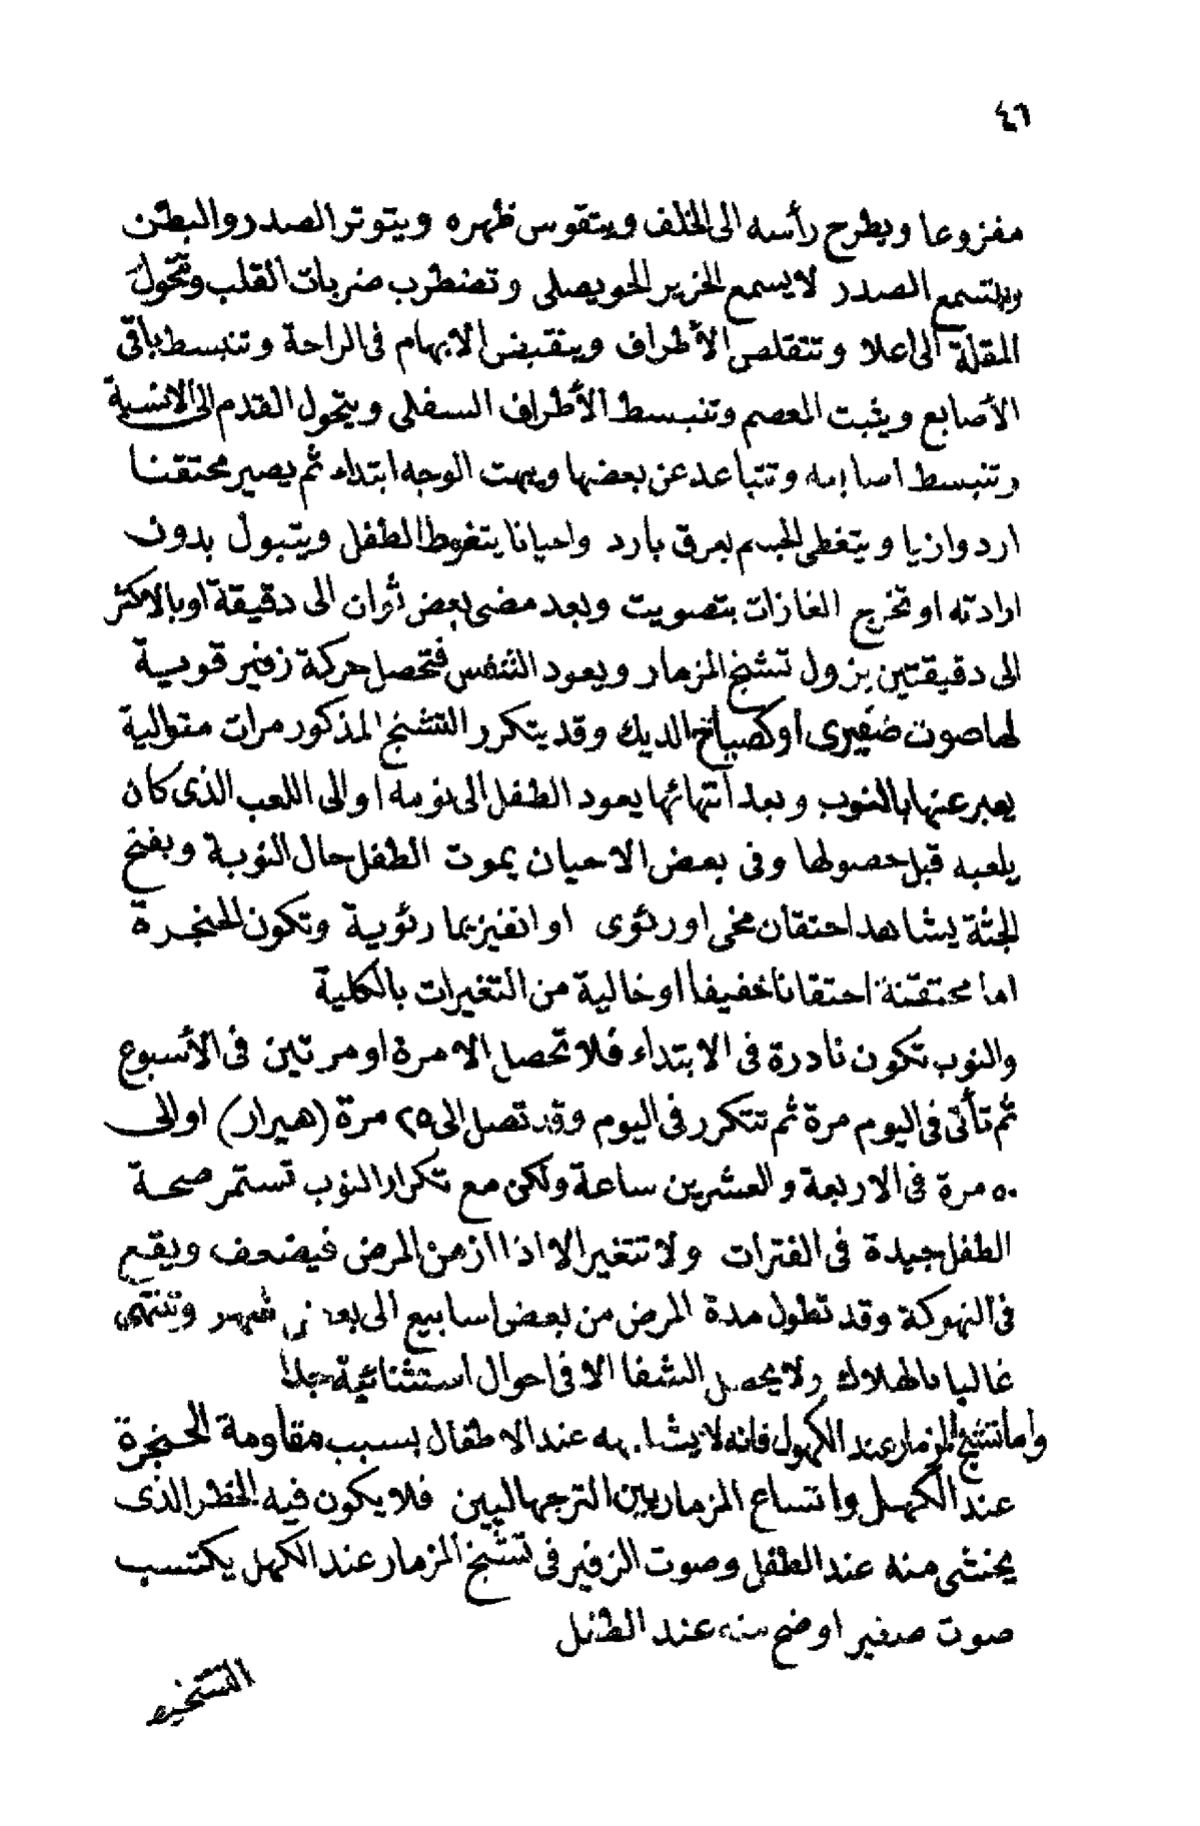 ٤٦
مفزوعا ويطرح رأسه الى الخلف ويتقوس ظهره ويتوتر الصدر والبطن
وبتسمع الصدر لا يسمع الخرير الحويصلى وتضطرب ضربات القلب وتتحول
المقلة الى اعلا وتتقلص الأطراف وينقبض الابهام فى الراحة وتنبسط باقى
الأصابع ويثبت المعصم وتنبسط الأطراف السفلى ويتحول القدم الى الانسية
وتنبسط اصابعه وتتباعد عن بعضها ويبهت الوجه ابتداء ثم يصير محتقنا
اردوازيا ويتغطى الجسم بعرق بارد واحيانا يتغوط الطفل ويتبول بدون
ارادته او تخرج الغازات بتصويت وبعد مضى بعض ثوان الى دقيقة او بالاكثر
الى دقيقتين يزول تشنج المزمار ويعود التنفس فتحصل حركة زفير قوية
لها صوت صفيرى او كصياح الديك وقد يتكرر التشنج المذكور مرات متوالية
يعبر عنها بالنوب وبعد انتهائها يعود الطفل الى نومه او الى اللعب الذى كان
يلعبه قبل حصولها وفى بعض الاحيان يموت الطفل حال النوبة وبفتح
الجثة يشاهد احتقان مخى او رئوى او انفيزيما رئوية وتكون الحنجرة
اما محتقنة احتقانا خفيفا او خالية من التغيرات بالكلية
والنوب تكون نادرة فى الابتداء فلا تحصل الا مرة او مرتين فى الأسبوع
ثم تأتى فى اليوم مرة ثم تتكرر فى اليوم وقد تصل الى ٢٥ مرة (هيرار) او الى
٥٠ مرة فى الاربعة والعشرين ساعة ولكن مع تكرار النوب تستمر صحة
الطفل جيدة فى الفترات ولا تتغير الا اذا ازمن المرض فيضعف ويقع
فى النهوكة وقد تطول مدة المرض من بعض اسابيع الى شهر وتنتهى
غالبا بالهلاك ولا يحصل الشفا الا فى احوال استثنائية جدا
واما تشنج المزمار عند الكهول فانه لا يشابه عند الاطفال بسبب مقاومة الحنجرة
عند الكهل واتساع المزمار بين الترجهاليين فلا يكون فيه الخطر الذى
يخشى منه عند الطفل وصوت الزفير فى تشنج المزمار عند الكهل يكتسب
صوت صفير اوضح منه عند الطفل